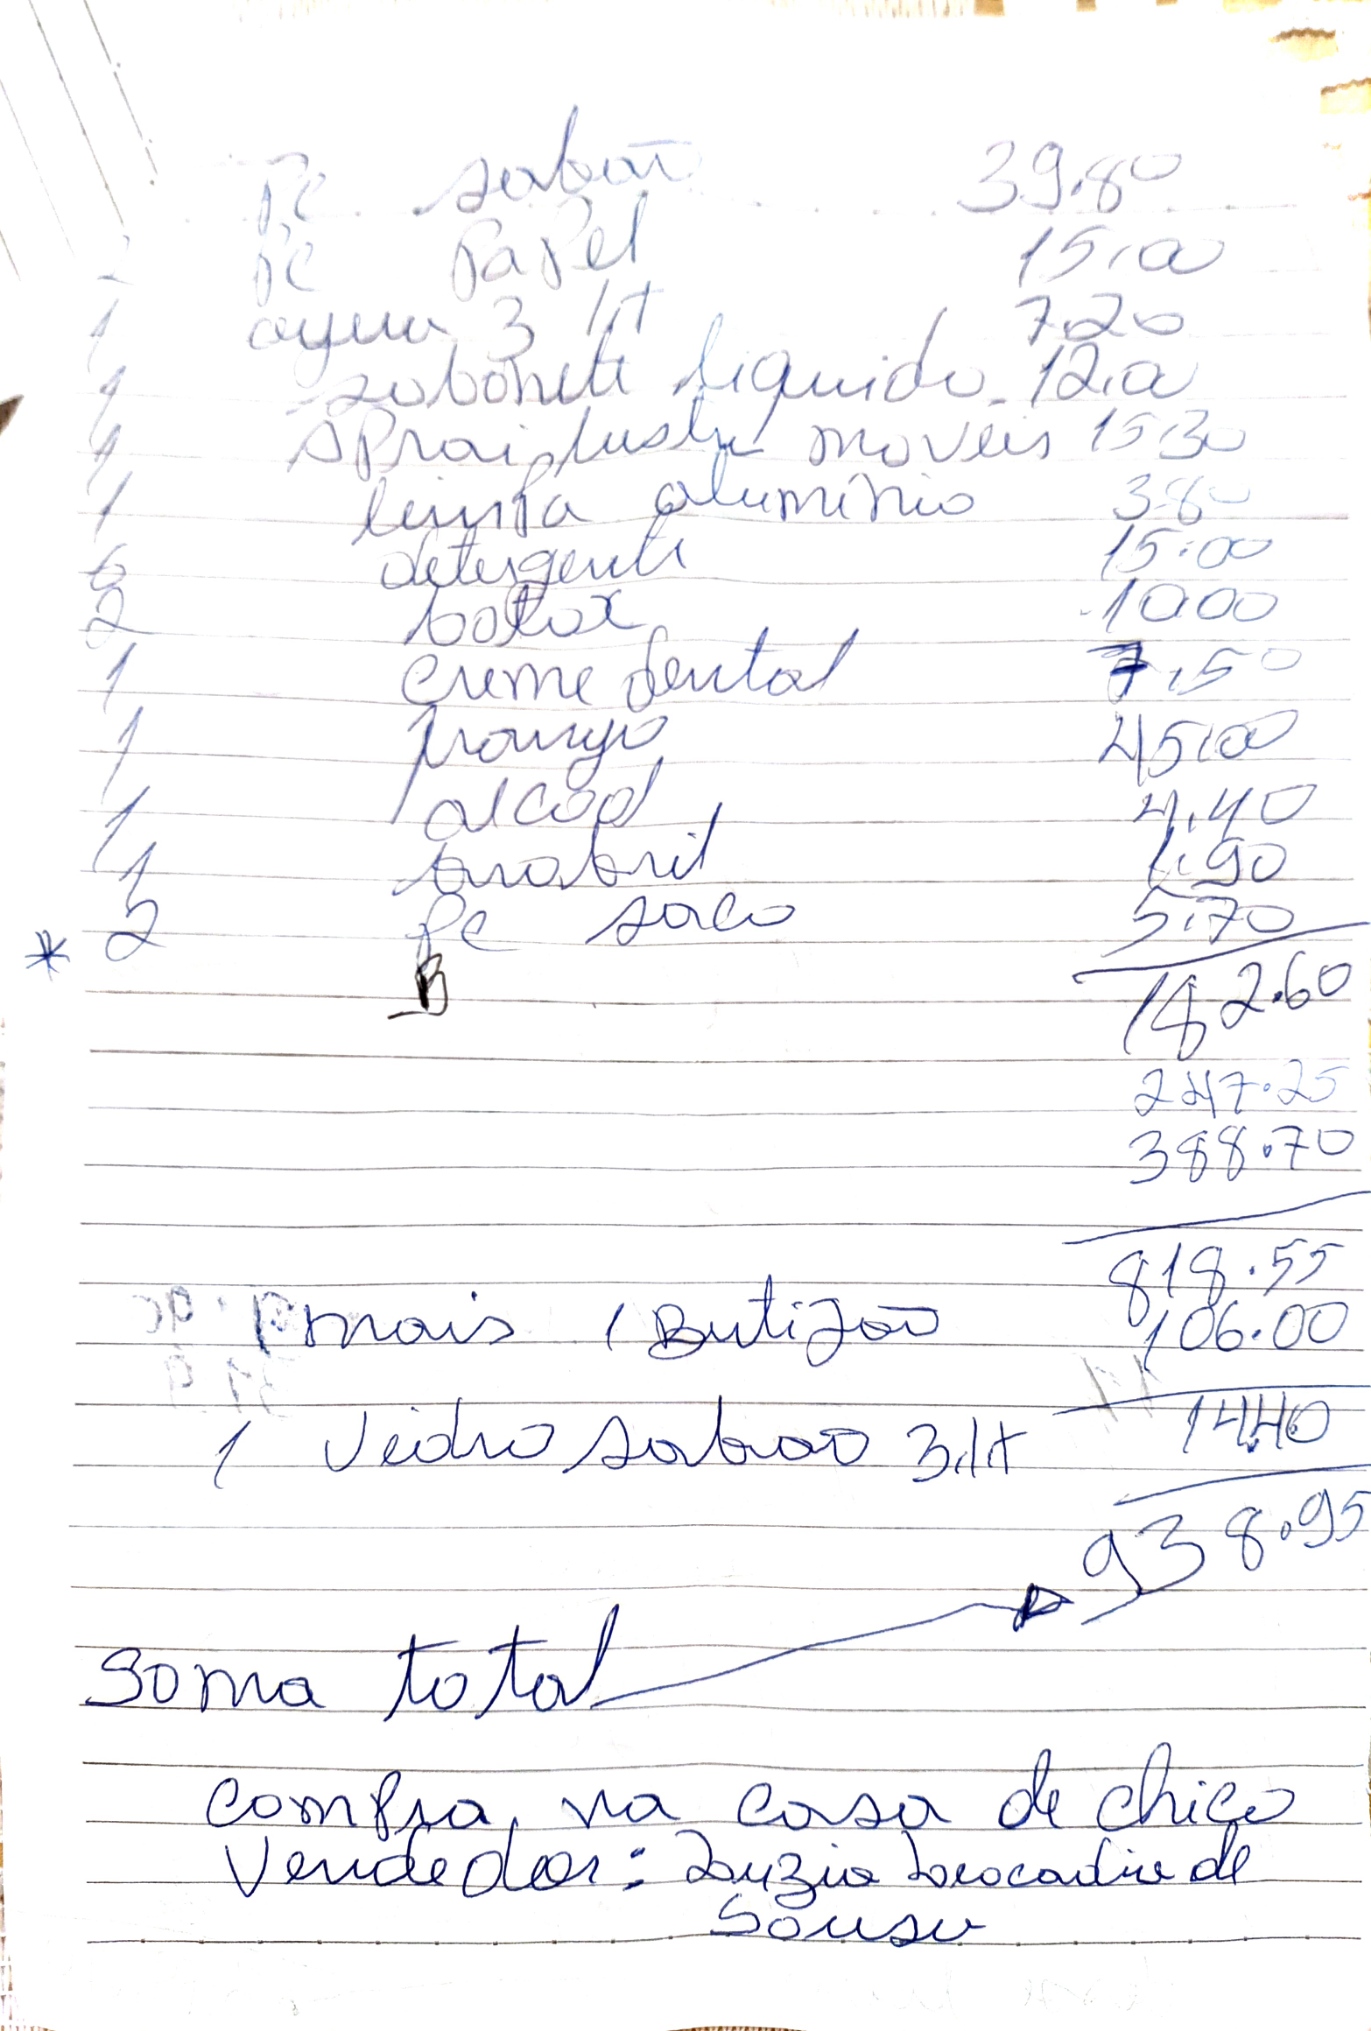 pc sabão 39.80
2 pc papel 15.00
1 3 lt 7.20
1 sabonete liquido 12.00
1 sprai lustra moveis 15.30
1 limpa aluminio 3.80
6 detergente 15.00
2 botox 10.00
1 creme dental 7.50
1 frango 45.00
1 alcool 4.40
1 1.90
* 2 pc saco 5.70
B
182.60
247.25
388.70
818.55
mais 1 Butijão 106.00
1 Vidro sabao 3.lt 14.40
938.95
Soma total
compra na casa de chico
Vendedor: Luzia Leocadia de
Sousa